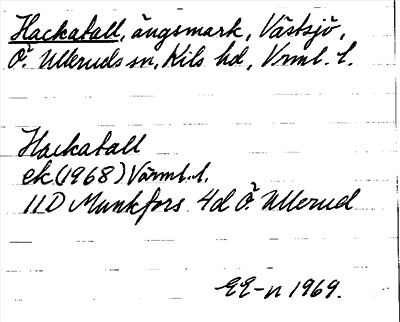 Hackatall, ängsmark, Västsjö,
Ö. Ulleruds sn, Kils hd, Vrml. l.
Hackatall
ek (1968) Värml. l.
11D Munkfors 4d Ö. Ullerud
EE-n 1969.